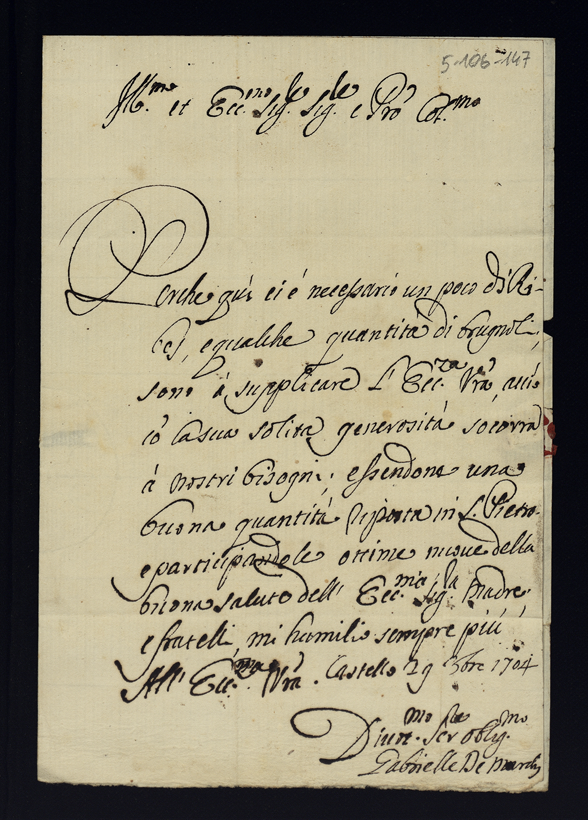 5-106-147
Ill.mo et Ecc.mo Sig.re Sig.re e Pro Col.mo
Perche quì ci é necessario un poco di Ri-
so, e qualche quantità di brugnoli,
sono á supplicare L'Ecc.za Vra acció
có la sua solita generosità socorra
á nostri bisogni, essendone una
buona quantità riposta in S. Pietro
e participandole ottime nuove della
buona salute dell' Ecc.ma Sig.ra Madre
e fratelli mi humilio sempre più
All' Ecc.za Vra. Castello 29 9bre 1704
Diuot.mo Ser.re oblig.mo
Gabrielle De